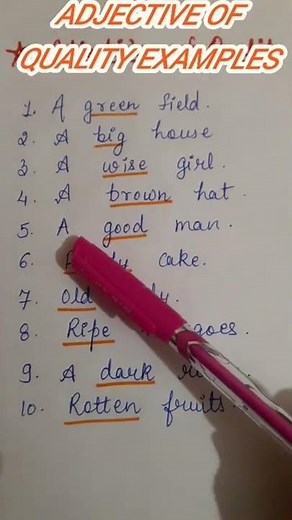 ADJECTIVE OF
QUALITY EXAMPLES
1. A green field.
2. A big house
3. A wise girl.
4. A brown hat.
5. A good man.
6. cake.
7. Old
8. Ripe
9. A dark
10. Rotten fruits.